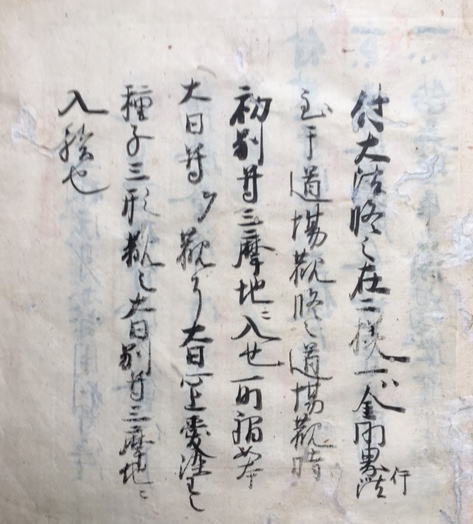 付大法修之在二様一ハ金剛界法行
至于道場観修之道場観時
初別尊三摩地ニ入也一印
大日尊ヲ観シ大日心上愛染之
種子三形観之大日別尊三摩地ニ
入給也